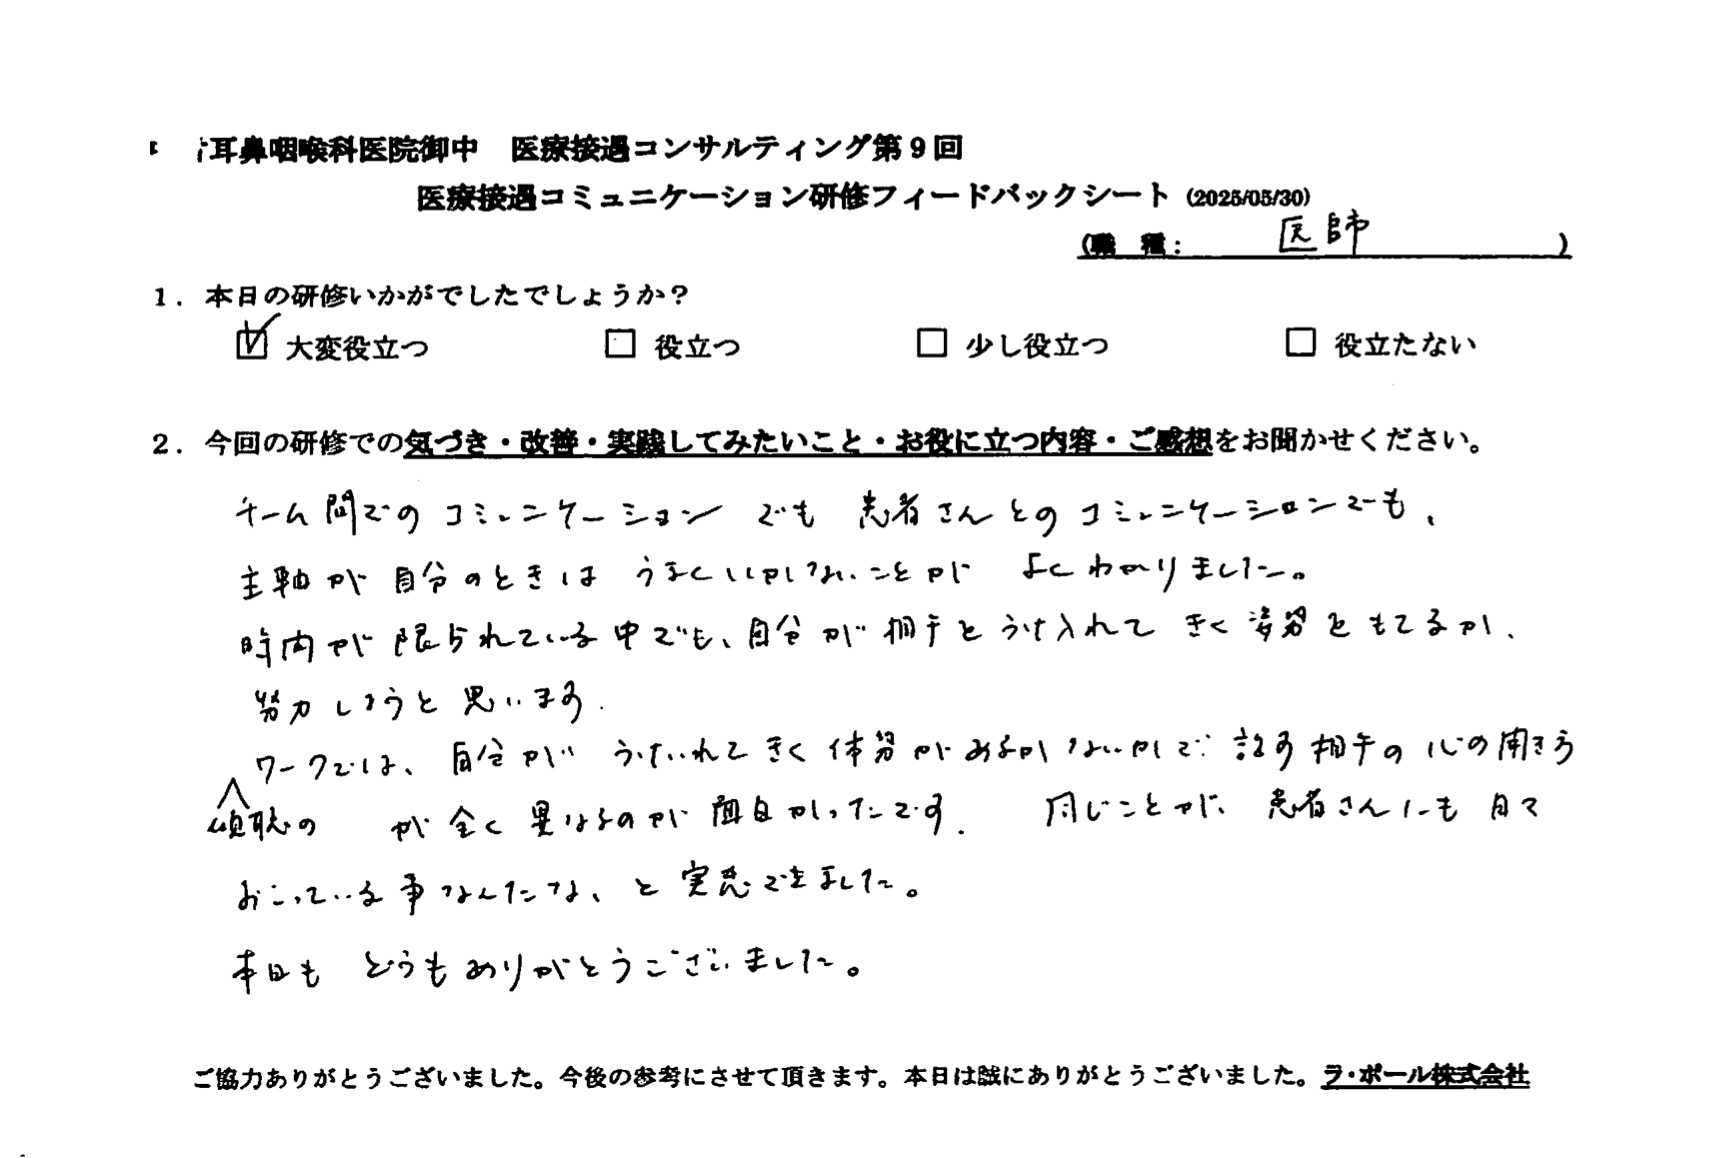 耳鼻咽喉科医院御中　医療接遇コンサルティング第9回
医療接遇コミュニケーション研修フィードバックシート（2025/05/30）
（職　種：　医師　）
1．本日の研修いかがでしたでしょうか？
☑ 大変役立つ　□ 役立つ　□ 少し役立つ　□ 役立たない
2．今回の研修での気づき・改善・実践してみたいこと・お役に立つ内容・ご感想をお聞かせください。
チーム間でのコミュニケーションでも患者さんとのコミュニケーションでも、
主軸が自分のときはうまくいかないことがよくわかりました。
時間が限られている中でも、自分が相手をうけ入れてきく姿勢をもてるか、
努力しようと思います.
ワークでは、自分がうけいれてきく体勢があるかないかで話す相手の心の開き方
傾聴の　が全く異なるのが面白かったです.　同じことが、患者さんにも日々
おこっている事なんだな、と実感できました。
本日もどうもありがとうございました。
ご協力ありがとうございました。今後の参考にさせて頂きます。本日は誠にありがとうございました。ラ・ポール株式会社